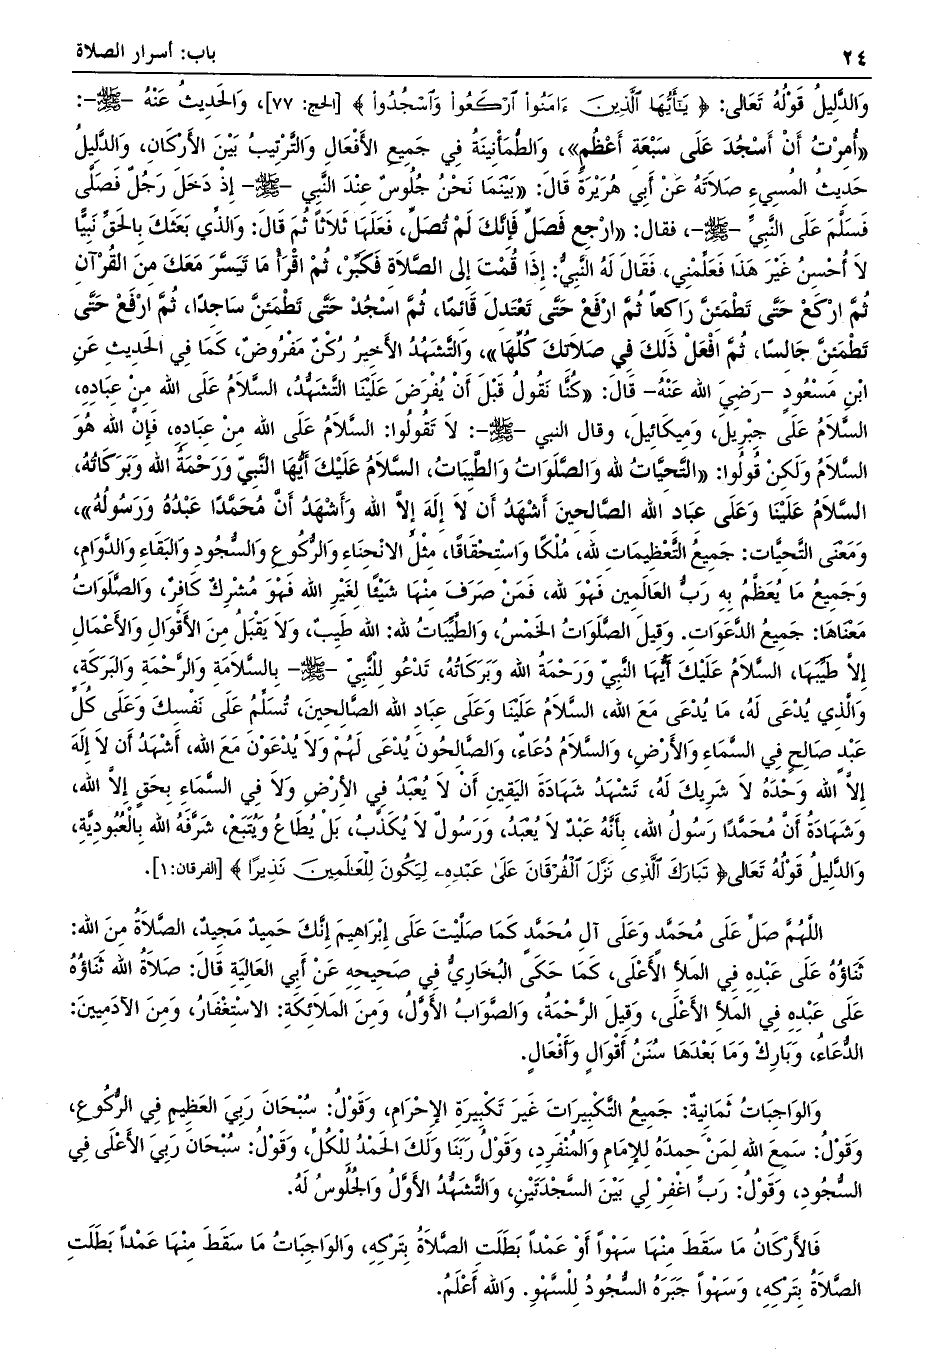 ٢٤ باب: أسرار الصلاة
وَالدَّلِيلُ قَوْلُهُ تَعَالى: ﴿ يَٰٓأَيُّهَا ٱلَّذِينَ ءَامَنُوا۟ ٱرْكَعُوا۟ وَٱسْجُدُوا۟ ﴾ [الحج: ٧٧]، وَالحَدِيثُ عَنْهُ -ﷺ-:
«أُمِرْتُ أَنْ أَسْجُدَ عَلَى سَبْعَةِ أَعْظُمٍ»، وَالطُّمَأْنِينَةُ فِي جَمِيعِ الأَفْعَالِ وَالتَّرْتِيبُ بَيْنَ الأَرْكَانِ، وَالدَّلِيلُ
حَدِيثُ المُسِيءِ صَلاَتَهُ عَنْ أَبِي هُرَيْرَةَ قَالَ: «بَيْنَمَا نَحْنُ جُلُوسٌ عِنْدَ النَّبِي -ﷺ- إِذْ دَخَلَ رَجُلٌ فَصَلَّى
فَسَلَّمَ عَلَى النَّبِيِّ -ﷺ-، فقال: «ارْجِع فَصَلِّ فَإِنَّكَ لَمْ تُصَلِّ، فَعَلَهَا ثَلاَثاً ثُمَّ قَالَ: وَالَّذِي بَعَثَكَ بِالحَقِّ نَبِيًّا
لاَ أُحْسِنُ غَيْرَ هَذَا فَعَلِّمْنِي، فَقَالَ لَهُ النَّبِيُّ: إِذَا قُمْتَ إِلى الصَّلاَةِ فَكَبِّرْ، ثُمَّ اقْرَأْ مَا تَيَسَّرَ مَعَكَ مِنَ القُرْآنِ
ثُمَّ ارْكَعْ حَتَّى تَطْمَئِنَّ رَاكِعاً ثُمَّ ارْفَعْ حَتَّى تَعْتَدِلَ قَائِمًا، ثُمَّ اسْجُدْ حَتَّى تَطْمَئِنَّ سَاجِدًا، ثُمَّ ارْفَعْ حَتَّى
تَطْمَئِنَّ جَالِسًا، ثُمَّ افْعَلْ ذَلِكَ فِي صَلاَتِكَ كُلِّهَا»، وَالتَّشَهُّدُ الأَخِيرُ رُكْنٌ مَفْرُوضٌ، كَمَا فِي الحَدِيثِ عَنِ
ابْنِ مَسْعُودٍ -رَضِيَ الله عَنْهُ- قَالَ: «كُنَّا نَقُولُ قَبْلَ أَنْ يُفْرَضَ عَلَيْنَا التَّشَهُّدُ، السَّلاَمُ عَلَى الله مِنْ عِبَادِهِ،
السَّلاَمُ عَلَى جِبْرِيلَ، وَمِيكَائِيلَ، وقال النبي -ﷺ-: لاَ تَقُولُوا: السَّلاَمُ عَلَى الله مِنْ عِبَادِهِ، فَإِنَّ الله هُوَ
السَّلاَمُ وَلَكِنْ قُولُوا: «التَّحِيَّاتُ لله وَالصَّلَوَاتُ وَالطَّيِّبَاتُ، السَّلاَمُ عَلَيْكَ أَيُّهَا النَّبِيّ وَرَحْمَةُ الله وَبَرَكَاتُهُ،
السَّلاَمُ عَلَيْنَا وَعَلَى عِبَادِ الله الصَّالِحِينَ أَشْهَدُ أَن لاَ إِلَهَ إِلاَّ الله وَأَشْهَدُ أَنَّ مُحَمَّدًا عَبْدُهُ وَرَسُولُهُ»،
وَمَعْنَى التَّحِيَّاتِ: جَمِيعُ التَّعْظِيمَاتِ لله، مُلْكًا وَاسْتِحْقَاقًا، مِثْلُ الانْحِنَاءِ وَالرُّكُوعِ وَالسُّجُودِ وَالبَقَاءِ وَالدَّوَامِ،
وَجَمِيعُ مَا يُعَظَّمُ بِهِ رَبُّ العَالَمِينَ فَهْوَ لله، فَمَنْ صَرَفَ مِنْهَا شَيْئًا لِغَيْرِ الله فَهْوَ مُشْرِكٌ كَافِرٌ، وَالصَّلَوَاتُ
مَعْنَاهَا: جَمِيعُ الدَّعَوَاتِ. وَقِيلَ الصَّلَوَاتُ الخَمْسُ، وَالطَّيِّبَاتُ لله: الله طَيِّبٌ، وَلاَ يَقْبَلُ مِنَ الأَقْوَالِ وَالأَعْمَالِ
إِلاَّ طَيِّبَهَا، السَّلاَمُ عَلَيْكَ أَيُّهَا النَّبِيّ وَرَحْمَةُ الله وَبَرَكَاتُهُ، تَدْعُو لِلنَّبِيّ -ﷺ- بِالسَّلاَمَةِ وَالرَّحْمَةِ وَالبَرَكَةِ،
وَالَّذِي يُدْعَى لَهُ، مَا يُدْعَى مَعَ الله، السَّلاَمُ عَلَيْنَا وَعَلَى عِبَادِ الله الصَّالِحِينَ، تُسَلِّمُ عَلَى نَفْسِكَ وَعَلَى كُلِّ
عَبْدٍ صَالِحٍ فِي السَّمَاءِ وَالأَرْضِ، وَالسَّلاَمُ دُعَاءٌ، وَالصَّالِحُونَ يُدْعَى لَهُمْ وَلاَ يُدْعَوْنَ مَعَ الله، أَشْهَدُ أَن لاَ إِلَهَ
إِلاَّ الله وَحْدَهُ لاَ شَرِيكَ لَهُ، تَشْهَدُ شَهَادَةَ اليَقِينِ أَنْ لاَ يُعْبَدُ فِي الأَرْضِ وَلاَ فِي السَّمَاءِ بِحَقٍ إِلاَّ الله،
وَشَهَادَةُ أَنَّ مُحَمَّدًا رَسُولُ الله، بِأَنَّهُ عَبْدٌ لاَ يُعْبَدُ، وَرَسُولٌ لاَ يُكَذَّبُ، بَلْ يُطَاعُ وَيُتَبَعْ، شَرَّفَهُ الله بِالْعُبُودِيَّةِ،
وَالدَّلِيلُ قَوْلُهُ تَعَالى﴿ تَبَارَكَ ٱلَّذِى نَزَّلَ ٱلْفُرْقَانَ عَلَىٰ عَبْدِهِۦ لِيَكُونَ لِلْعَٰلَمِينَ نَذِيرًا ﴾ [الفرقان:١].
اللَّهُمَّ صَلِّ عَلَى مُحَمَّدٍ وَعَلَى آلِ مُحَمَّدٍ كَمَا صَلَّيْتَ عَلَى إِبْرَاهِيمَ إِنَّكَ حَمِيدٌ مَجِيدٌ، الصَّلاَةُ مِنَ الله:
ثَنَاؤُهُ عَلَى عَبْدِهِ فِي المَلأِ الأَعْلَى، كَمَا حَكَى البُخَارِيُّ فِي صَحِيحِهِ عَنْ أَبِي العَالِيَةِ قَالَ: صَلاَةُ الله ثَنَاؤُهُ
عَلَى عَبْدِهِ فِي المَلأِ الأَعْلَى، وَقِيلَ الرَّحْمَةُ، وَالصَّوَابُ الأَوَّلُ، وَمِنَ المَلاَئِكَةِ: الاسْتِغْفَارُ، وَمِنَ الآدَمِيينَ:
الدُّعَاءُ، وَبَارِكْ وَمَا بَعْدَهَا سُنَنُ أَقْوَالٍ وَأَفْعَالٍ.
وَالوَاجِبَاتُ ثَمَانِيةٌ: جَمِيعُ التَّكْبِيرَاتِ غَيرَ تَكْبِيرَةِ الإِحْرَامِ، وَقَوْلُ: سُبْحَانَ رَبِيَ العَظِيمِ فِي الرُّكُوعِ،
وَقَوْلُ: سَمِعَ الله لِمَنْ حَمِدَهُ لِلإِمَامِ وَالمُنْفَرِدِ، وَقَوْلُ رَبَنَا وَلَكَ الحَمْدُ لِلْكُلِّ، وَقَوْلُ: سُبْحَانَ رَبِيَ الأَعْلَى فِي
السُّجُودِ، وَقَوْلُ: رَبِّ اغْفِرْ لِي بَيْنَ السَّجْدَتَيْنِ، وَالتَّشَهُّدُ الأَوَّلُ وَالجُلُوسُ لَهُ.
فَالأَرْكَانُ مَا سَقَطَ مِنْهَا سَهْواً أَوْ عَمْداً بَطَلَتِ الصَّلاَةُ بِتَركِهِ، وَالوَاجِبَاتُ مَا سَقَطَ مِنْهَا عَمْداً بَطَلَتِ
الصَّلاَةُ بِتَركِهِ، وَسَهْواً جَبَرَهُ السُّجُودُ لِلْسَّهْوِ. وَالله أَعْلَمُ.